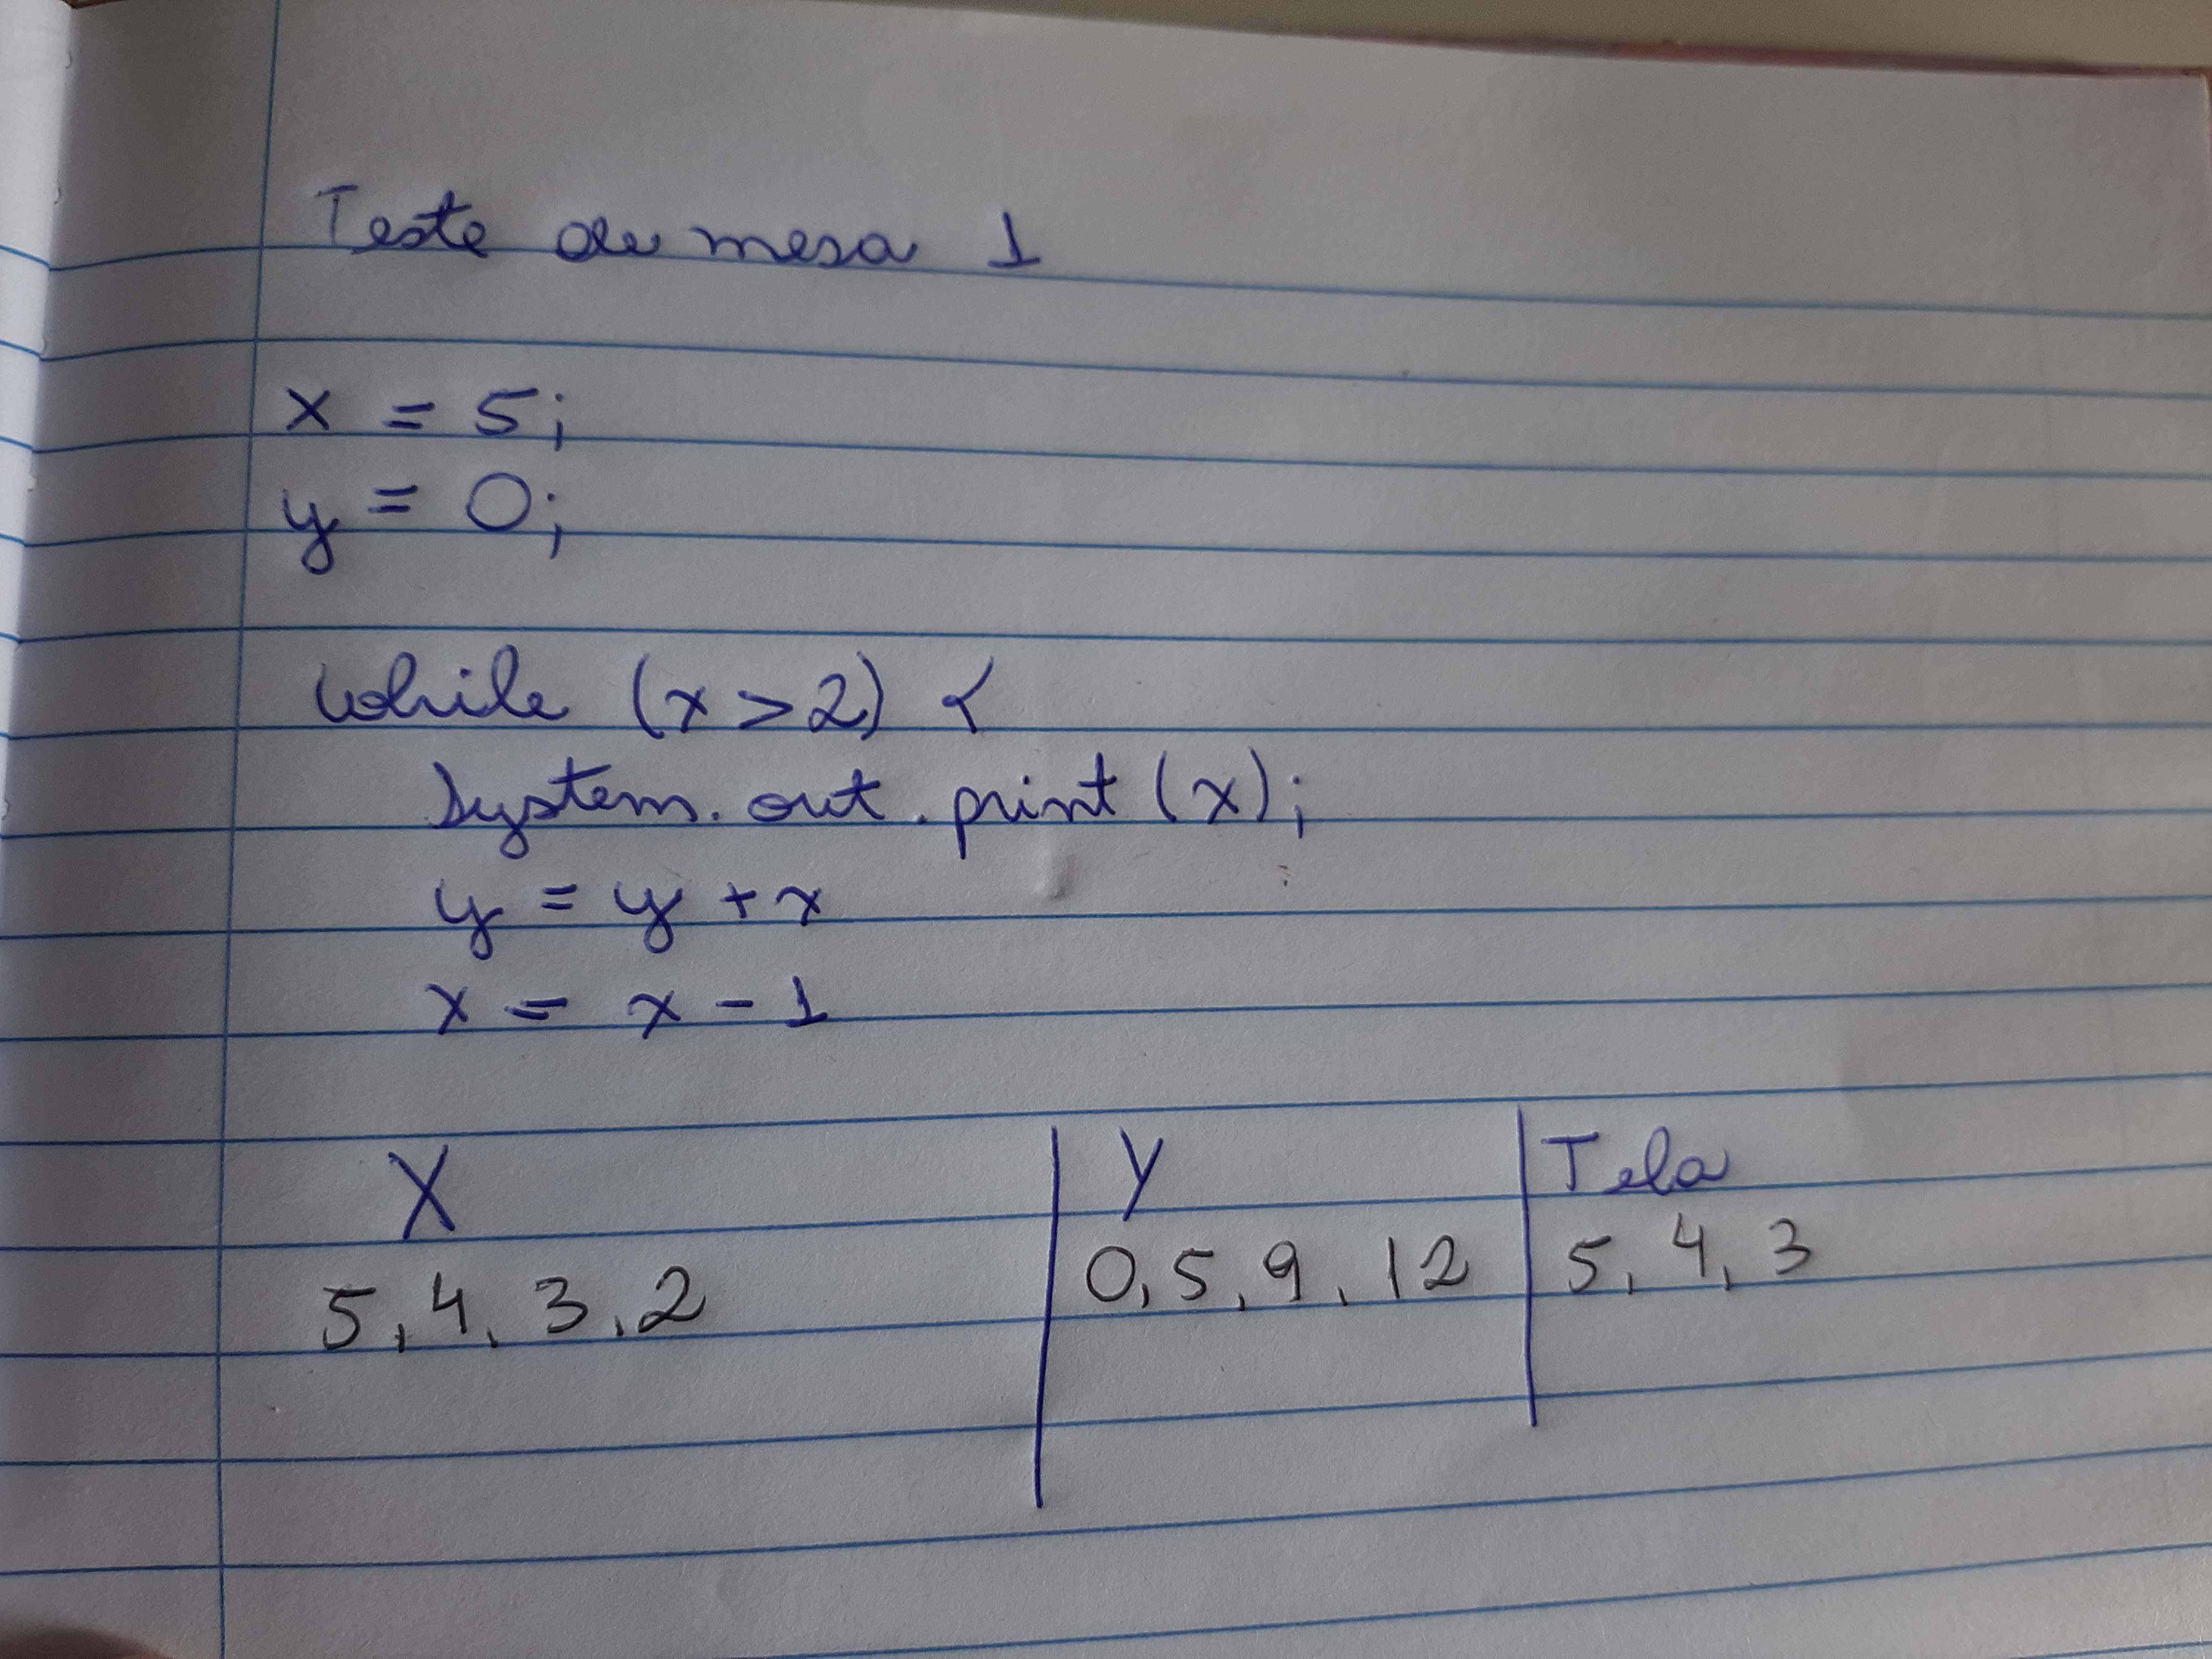 Teste de mesa 1
x = 5;
y = 0;
while (x > 2) {
System.out.print(x);
y = y + x
x = x - 1
X | Y | Tela
5, 4, 3, 2 | 0, 5, 9, 12 | 5, 4, 3